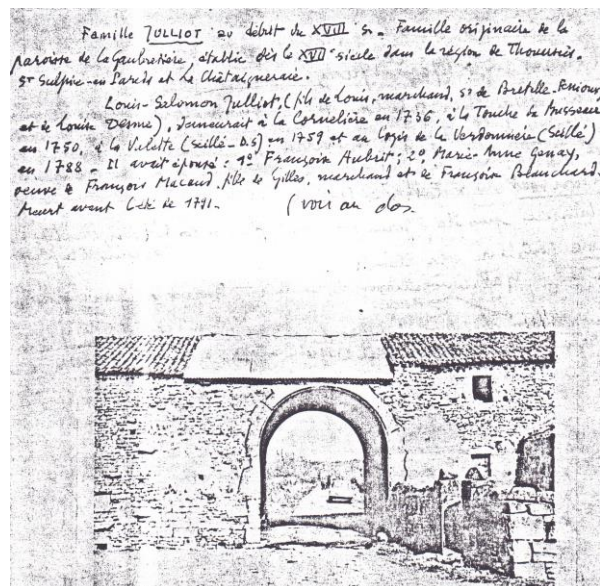 Famille JULLIOT au début du XVIII s. Famille originaire de la
paroisse de la Gaubretière, établie dès le XVII siècle dans la région de Thouarsais,
St Sulpice-en Pareds et La Châtaigneraie.
Louis-Salomon Julliot, (fils de Louis, marchand, sr de Bretelle-Fenioux
et de Louise Denne), demeurait à la Cornelière en 1736, à la Touche de
en 1750, à la Violette (Seillé-D.S) en 1759 et au Logis de la Verdonnière (Seillé)
en 1788 - Il avait épousé : 1º Françoise Aubrit ; 2º Marie-Anne Genay,
veuve de François Macaud, fille de Gilles, marchand et de Françoise Blanchard.
Meurt avant l'été de 1791. (voir au dos.